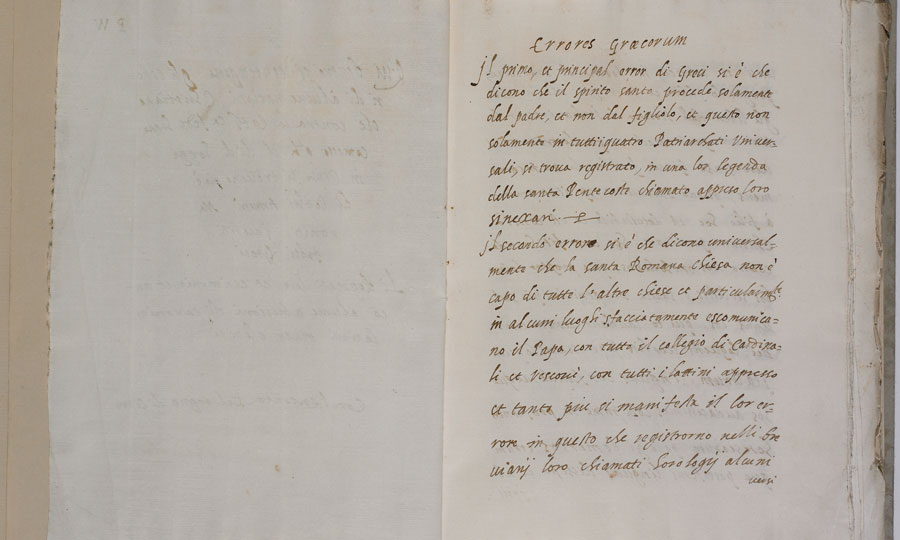 Errores Græcorum
Jl primo, et principal error di Greci si è che
dicono che il spirito santo procede solamente
dal padre, et non del figliolo, et questo non
solamente in tutti i quatro Patriarchati Univer-
sali, si troua registrato, in una lor legenda
della santa Pentecoste chiamato appreso loro
sinexari
Jl secondo errore si è che dicono universal-
mente che la santa Romana chiesa non è
capo di tutte l'altre chiese et particularmte
in alcuni luoghi sfacciatamente escomunica=
no il Papa, con tutto il collegio di Cardina-
li et Vescovi, con tutti i lattini appresso
et tanto piu si manifesta il lor er-
rore in questo che registrorno nelli bre
uiarij loro chiamati horologij alcuni
uersi